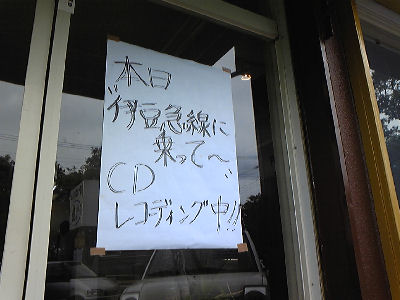 本日
"伊豆急線に
乗って〜"
CD
レコーディング中!!